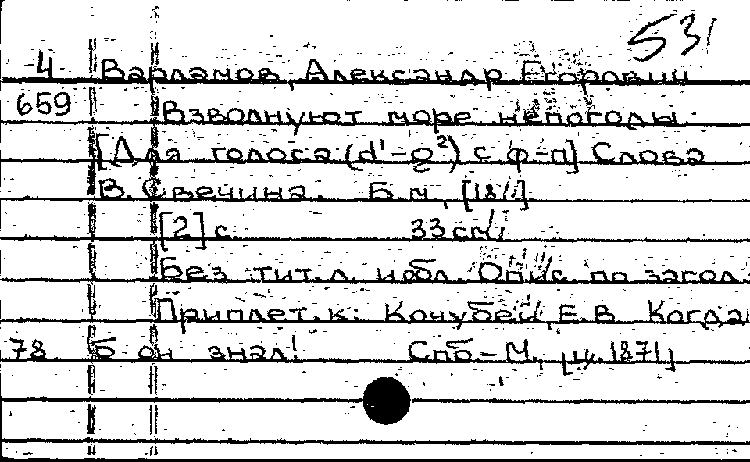 531
4 Варламов, Александр Егорович
659 Взволнуют море непогоды
[Для голоса (d¹-g²) с ф-п] Слова
В. Свечина. Б.м.,
[2] с. 33 см
Без тит.л. и обл. Опис. по загол.
Приплет. к: Кочубей, Е.В. Когда
78 б он знал! Спб-М., [ц. 1871]